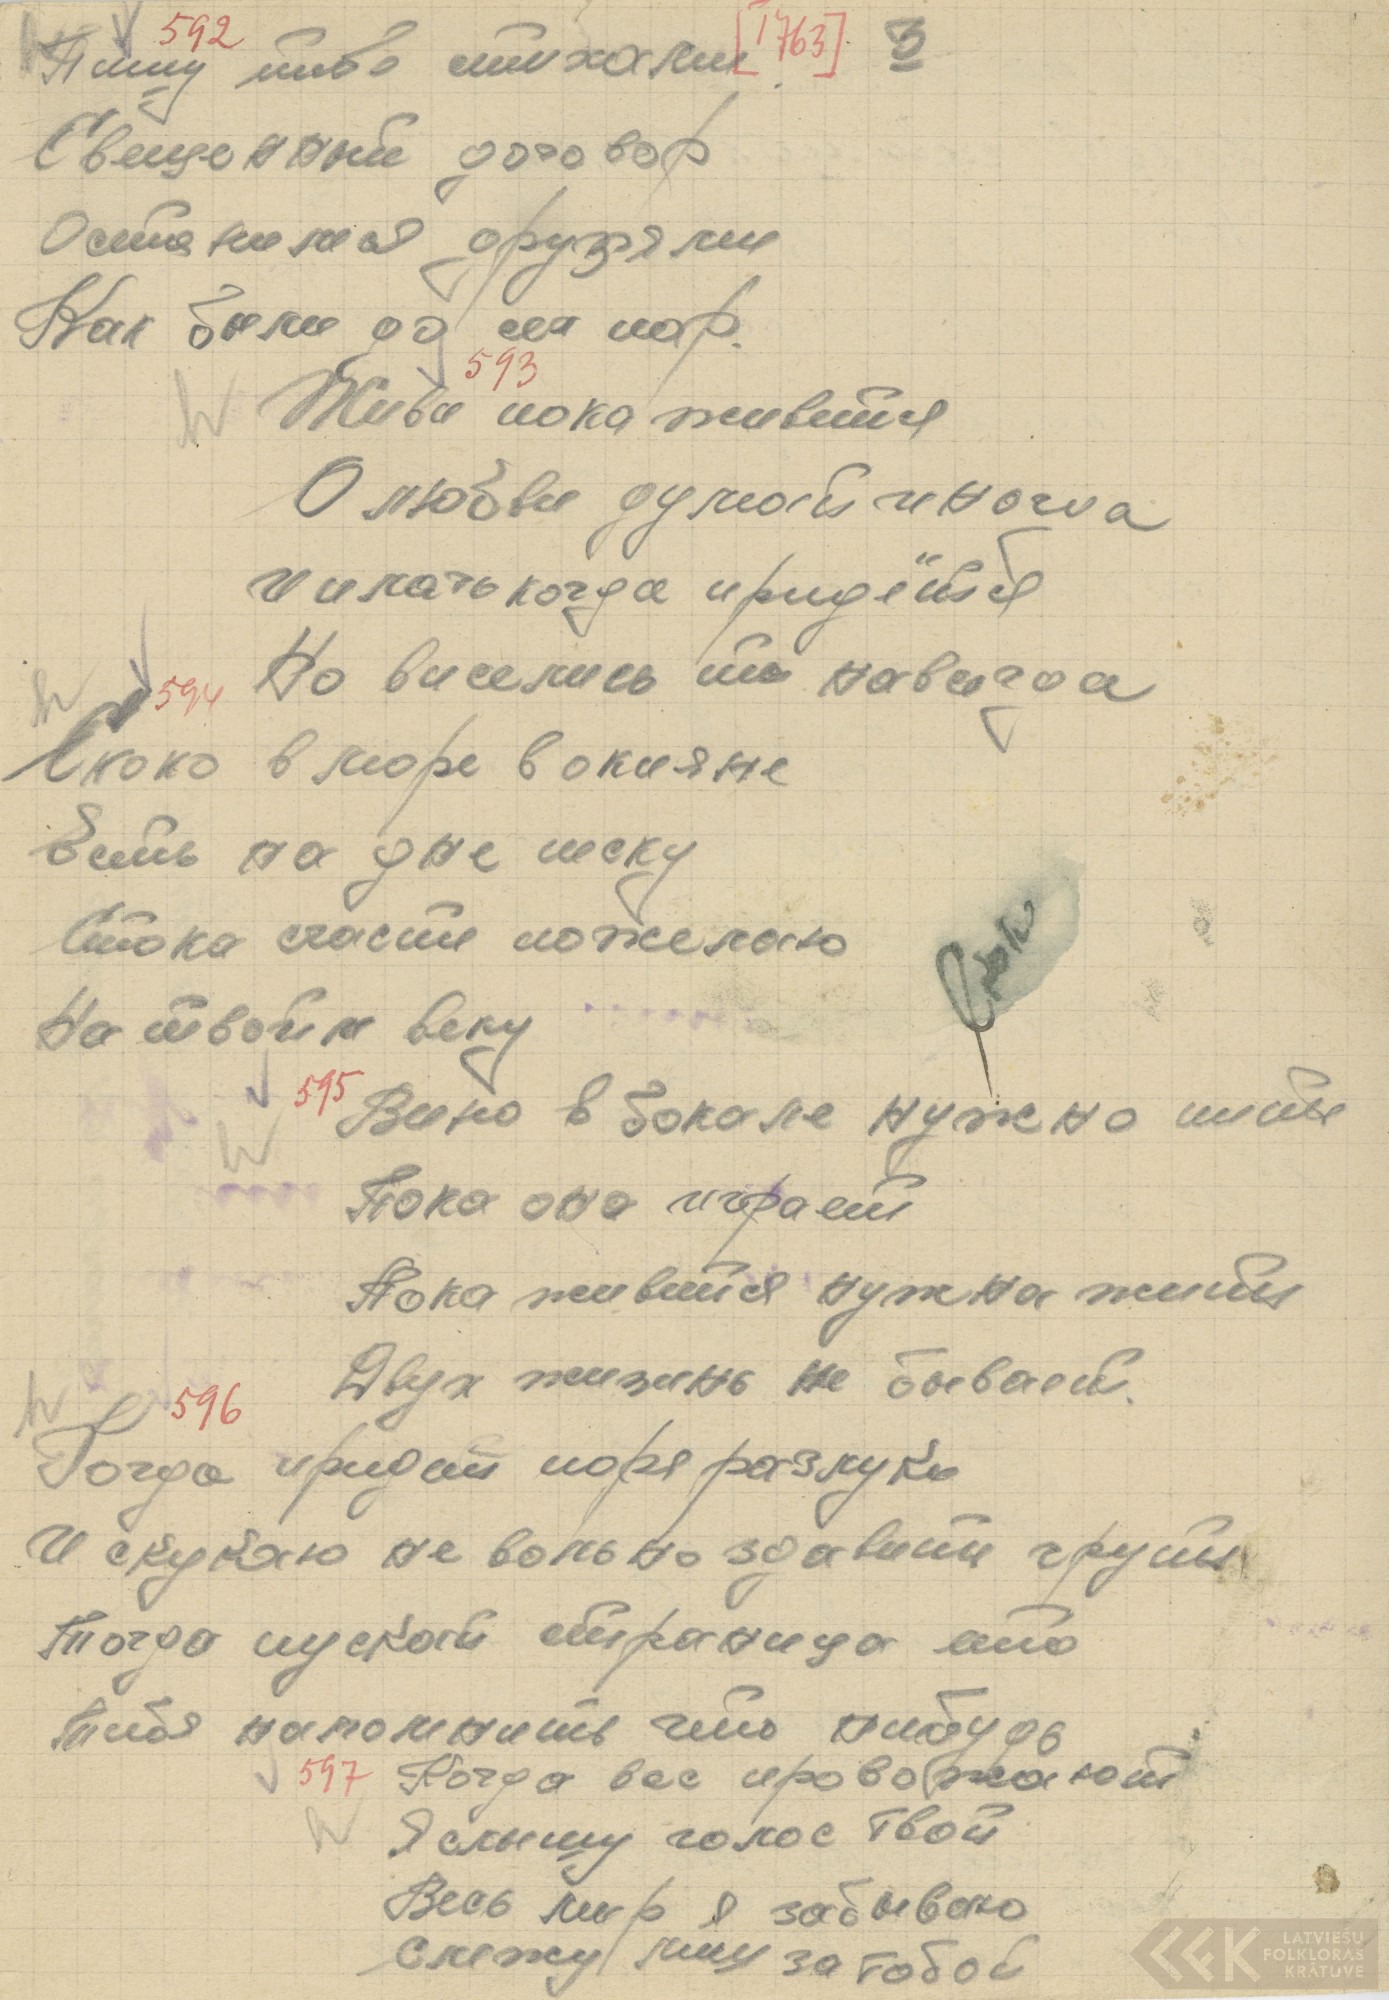 592 [1763] 3
Пишу тибе стихами
Свещенный договор
Останимся друзями
Как были до сих пор.
593
Живи пока живется
О любви думай иногда
Скоко в море в окияне
594
И плачь когда придётся
Но виселись ты навсигда
Есть на дне песку
Стока счасти пожелаю
На твоём веку
595 Вино в бокале нужно пить
Пока оно играет
Пока живется нужна жить
Двух жизинь не бывает.
596
Когда придет пора разлуки
И скукаю не вольно здавит грудь
Тогда пускай страница эта
Тибя напомнить что нибудь
597 Когда вас провожают
Я слышу голос твой
Весь мир я забываю
Слежу лиш за тобой
LATVIEŠU
FOLKLORAS
KRĀTUVE